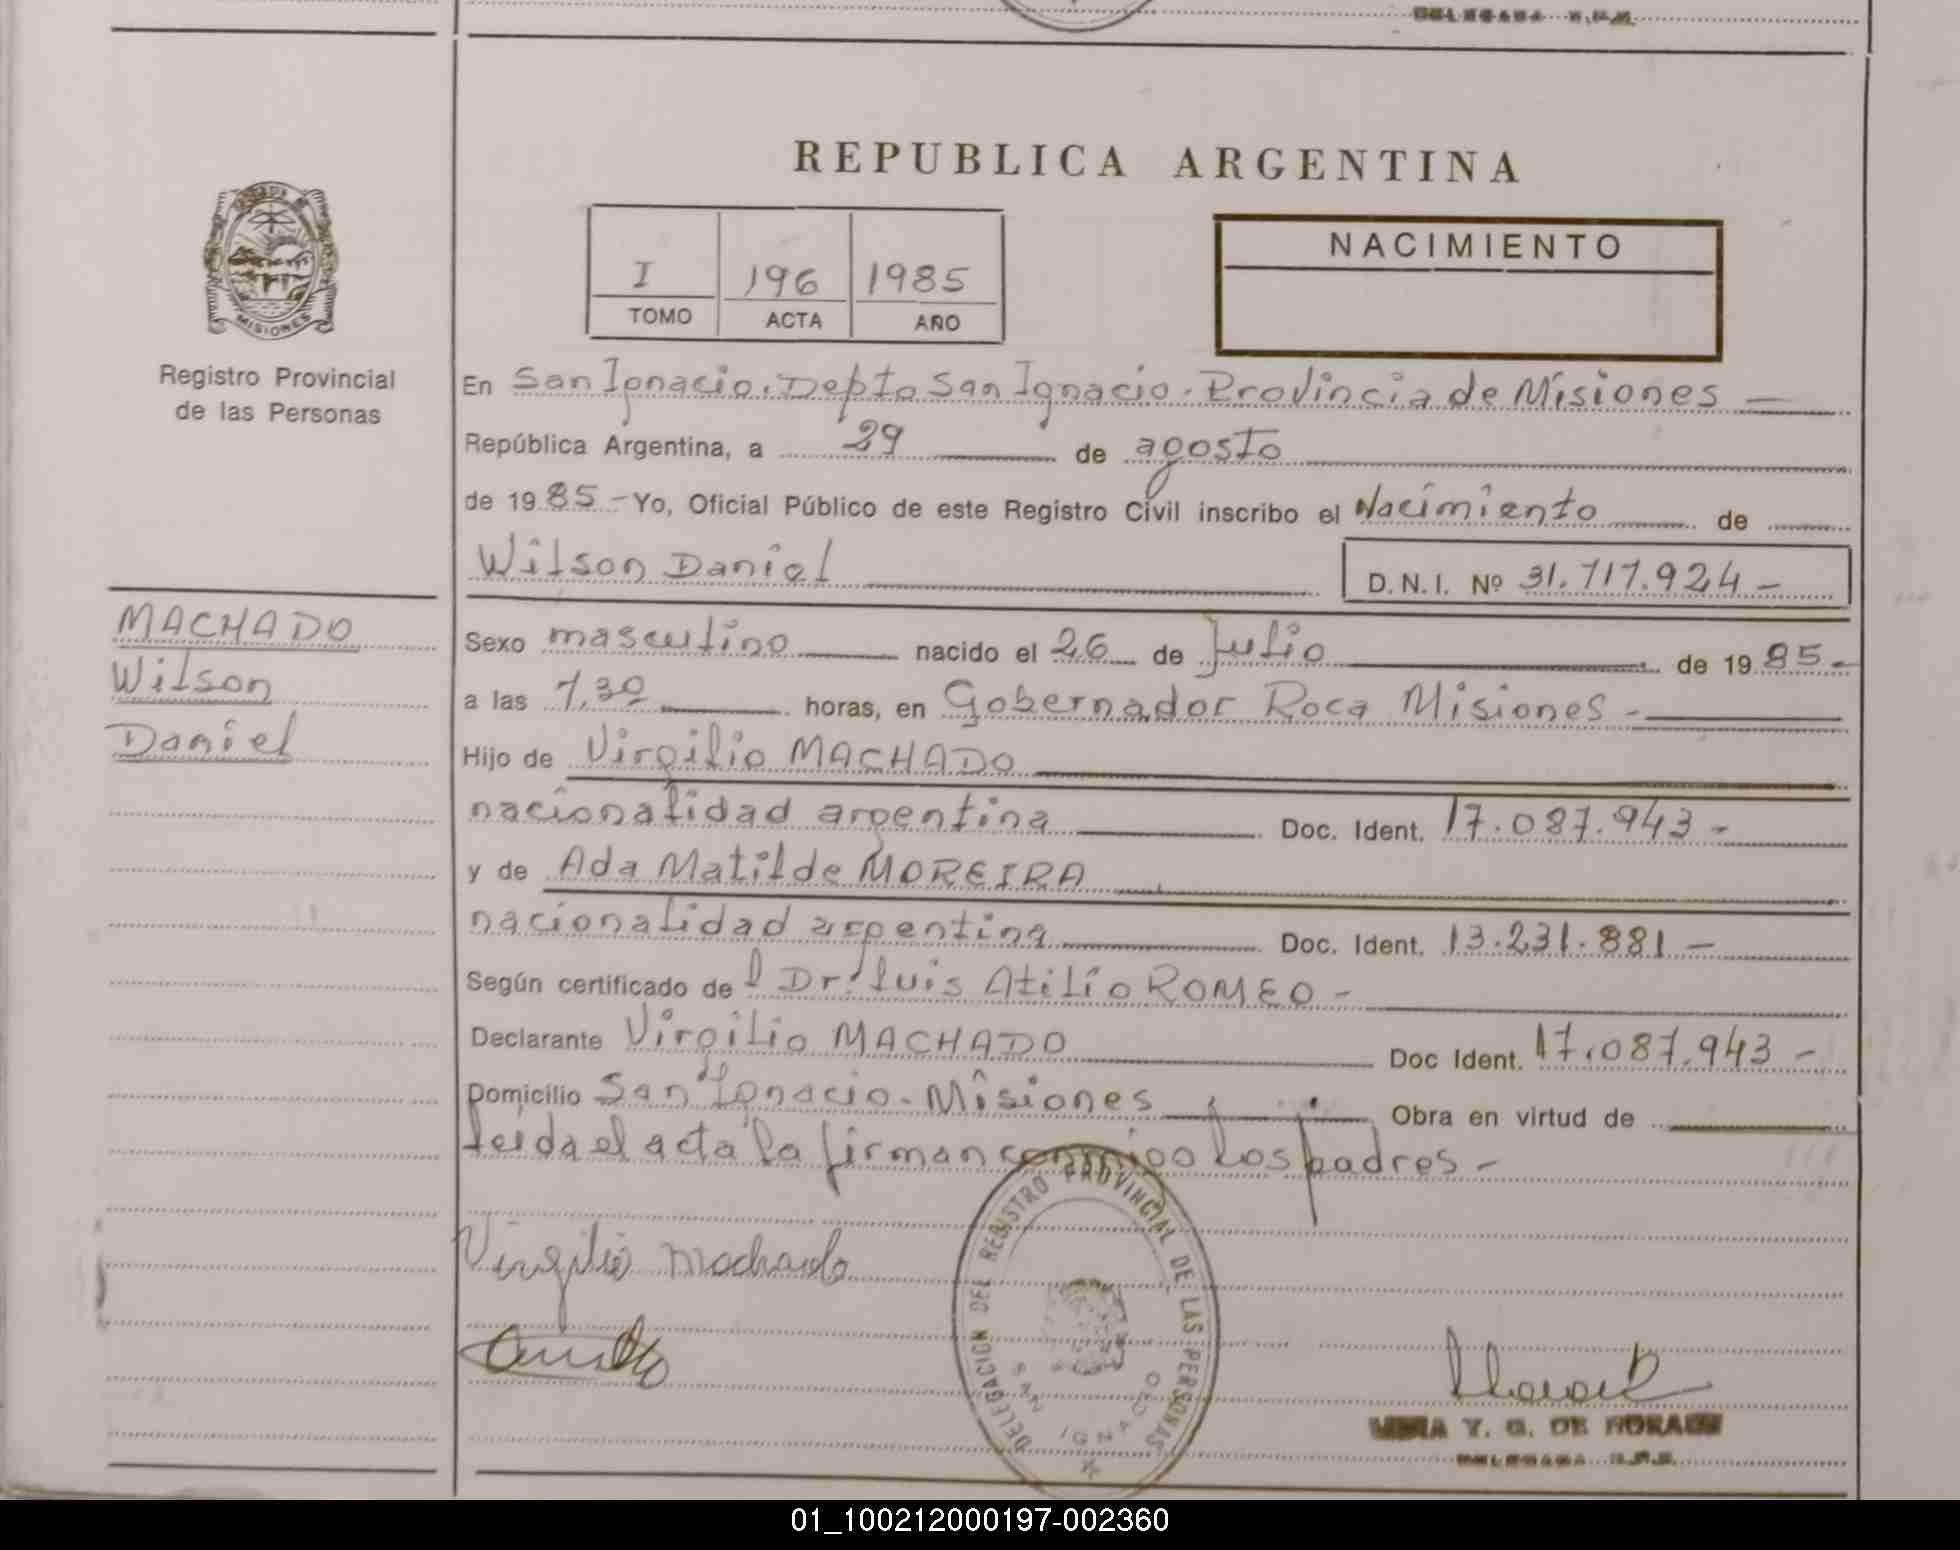 REPUBLICA ARGENTINA
I 196 1985
TOMO ACTA AÑO
NACIMIENTO
MISIONES
Registro Provincial
de las Personas
En San Ignacio. Depto San Ignacio. Provincia de Misiones —
República Argentina, a 29 de agosto
de 1985.- Yo, Oficial Público de este Registro Civil inscribo el Nacimiento de
Wilson Daniel
D.N.I. Nº 31.717.924 -
MACHADO
Wilson
Daniel
Sexo masculino nacido el 26 de Julio de 1985-
a las 7,30 horas, en Gobernador Roca Misiones -
Hijo de Virgilio MACHADO
nacionalidad argentina Doc. Ident. 17.087.943-
y de Ada Matilde MOREIRA
nacionalidad argentina Doc. Ident. 13.231.881 -
Según certificado del Dr. Luis Atilio ROMEO -
Declarante Virgilio MACHADO Doc Ident. 17.087.943 -
Domicilio San Ignacio - Misiones Obra en virtud de
leida el acta la firman conmigo los padres -
Virgilio Machado
DELEGACION DEL REGISTRO PROVINCIAL DE LAS PERSONAS
SAN IGNACIO
Y. G. DE
DELEGADA R.P.P.
01_100212000197-002360